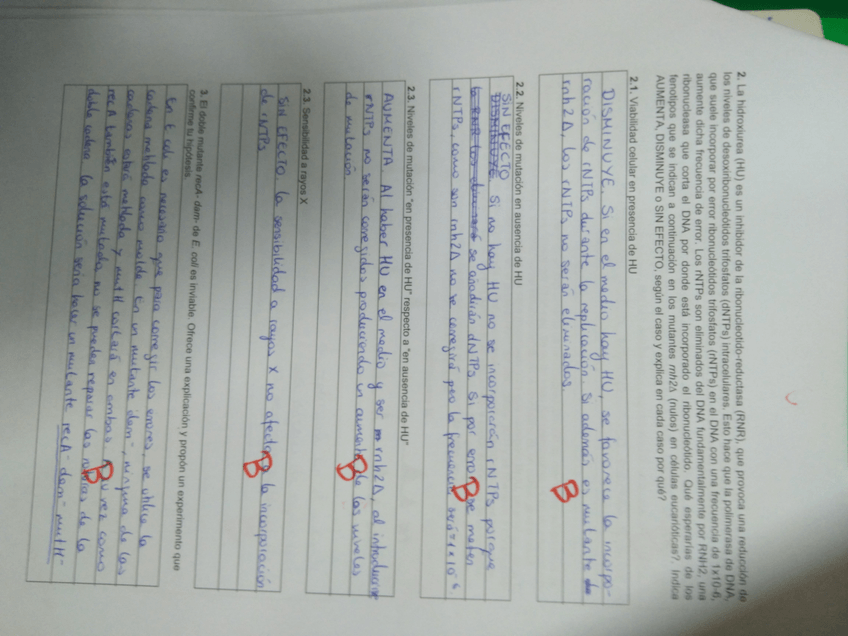 2. La hidroxiurea (HU) es un inhibidor de la ribonucleotido-reductasa (RNR), que provoca una reducción de
los niveles de desoxirribonucleótidos trifosfatos (dNTPs) intracelulares. Esto hace que la polimerasa de DNA,
que suele incorporar por error ribonucleótidos trifosfatos (rNTPs) en el DNA con una frecuencia de 1x10-6,
aumente dicha frecuencia de error. Los rNTPs son eliminados del DNA fundamentalmente por RNH2, una
ribonucleasa que corta el DNA por donde está incorporado el ribonucleótido. Qué esperarías de los
fenotipos que se indican a continuación en los mutantes rnh2Δ (nulos) en células eucarióticas?. Indica
AUMENTA, DISMINUYE o SIN EFECTO, según el caso y explica en cada caso por qué?
2.1. Viabilidad celular en presencia de HU
DISMINUYE. Si en el medio hay HU, se favorece la incorpo-
ración de rNTPs durante la replicación. Si además es mutante
rnh2Δ, los rNTPs no serán eliminados.
B
2.2. Niveles de mutación en ausencia de HU
SIN EFECTO
DISMINUYE Si no hay HU no se incorporarán rNTPs porque
la RNR los eliminará se añadirán dNTPs. Si por error se meten
rNTPs, como son rnh2Δ no se corregirá pero la frecuencia será 1x10-6
B
2.3. Niveles de mutación "en presencia de HU" respecto a "en ausencia de HU"
AUMENTA. Al haber HU en el medio y ser rnh2Δ, al introducir
rNTPs no serán corregidos produciendo un aumento de los niveles
de mutación
B
2.3. Sensibilidad a rayos X
SIN EFECTO, la sensibilidad a rayos X no afecta a la incorporación
de rNTPs
B
3. El doble mutante recA- dam- de E. coli es inviable. Ofrece una explicación y propón un experimento que
confirme tu hipótesis.
En E. coli es necesario que para corregir los errores, se utilice la
cadena metilada como molde. En un mutante dam-, ninguna de las
cadenas estará metilada y mutH cortará en ambas. A su vez como
recA también está mutada no se pueden reparar las roturas de la
doble cadena. La solución sería hacer un mutante recA- dam- mutH-
B